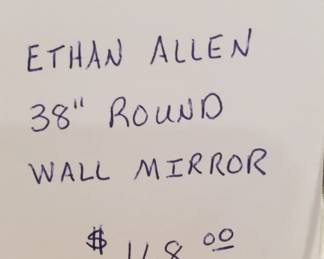 ETHAN ALLEN
38" ROUND
WALL MIRROR
$ 118 00